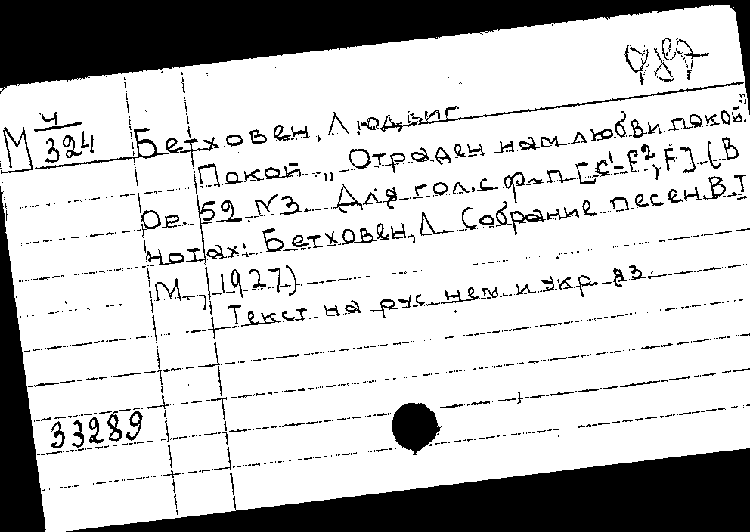 787
М 4/324
Бетховен, Людвиг
Покой. „Отраден нам любви покой."
Ор. 52 № 3. Для гол. с ф-п [c¹-f², F]. (В
нотах: Бетховен, Л. Собрание песен. В. I
М., 1927)
Текст на рус. нем и укр. яз.
33289